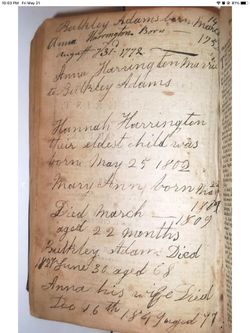 10:03 PM Fri May 21
87%
Bulkley Adams born
March
Anna Harrington Born
August 31st 1772
Anna Harrington Married
to Bulkley Adams
Hannah Harrington
their eldest child was
born May 25 1802
Mary Ann born
Died March 1809
aged 22 months
Bulkley Adams Died
1827 June 30 aged 68
Anna his wife Died
Dec 16th 1849 aged 77